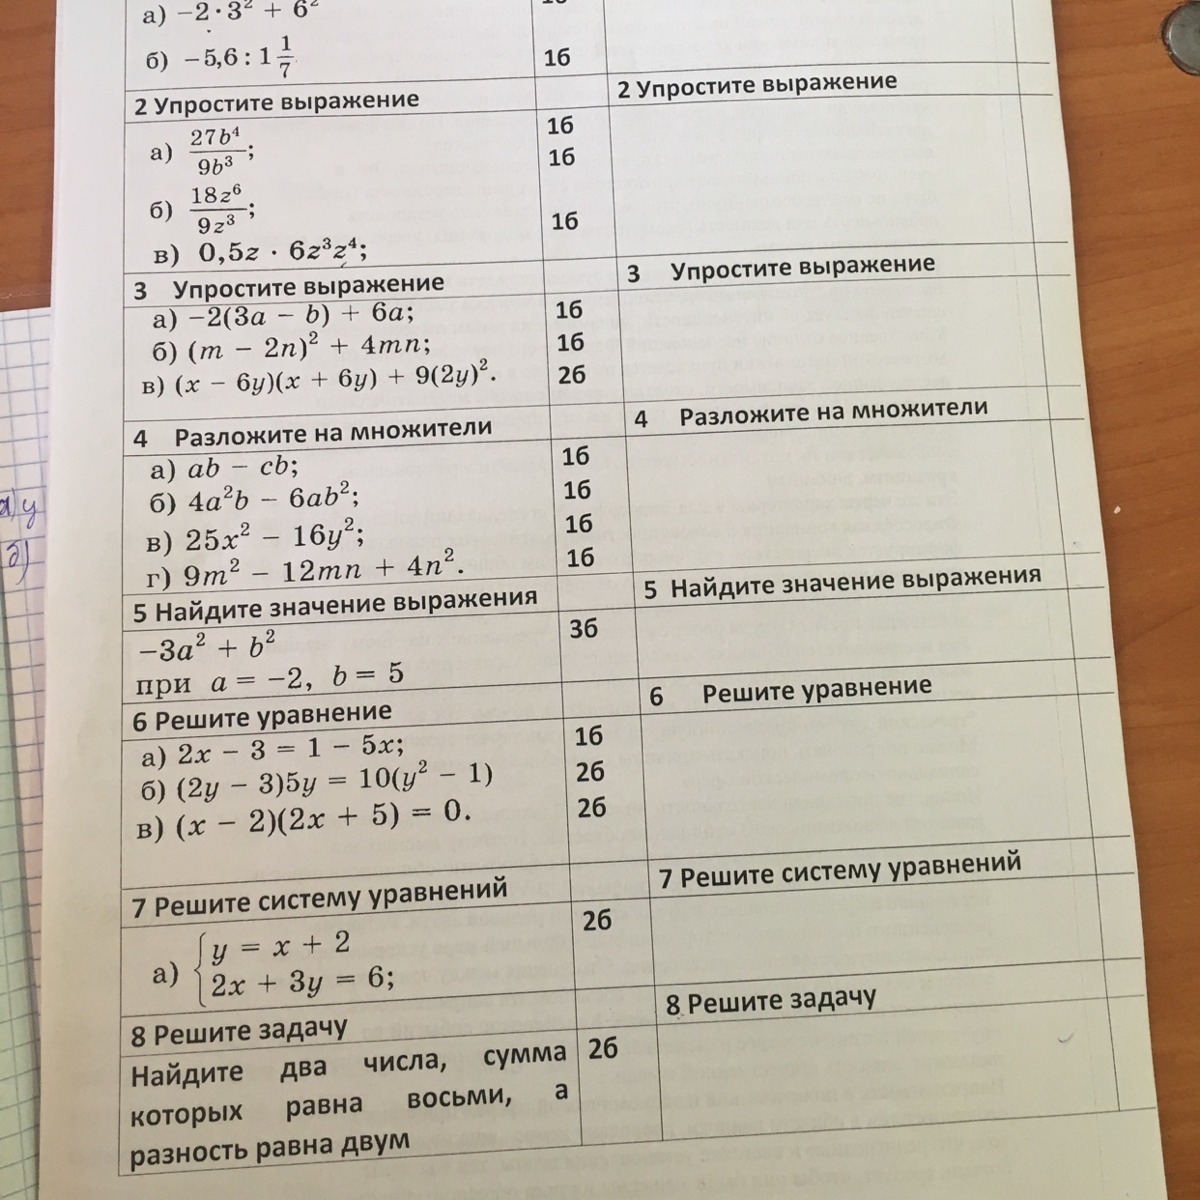 а) −2 · 3² + 6²
1б
б) −5,6 : 1 1/7
1б
2 Упростите выражение
2 Упростите выражение
а) 27b⁴/9b³;
1б
1б
б) 18z⁶/9z³;
1б
в) 0,5z · 6z³z⁴;
3 Упростите выражение
3 Упростите выражение
а) −2(3a − b) + 6a;
1б
б) (m − 2n)² + 4mn;
1б
в) (x − 6y)(x + 6y) + 9(2y)².
2б
4 Разложите на множители
4 Разложите на множители
а) ab − cb;
1б
б) 4a²b − 6ab²;
1б
в) 25x² − 16y²;
1б
г) 9m² − 12mn + 4n².
1б
5 Найдите значение выражения
5 Найдите значение выражения
−3a² + b²
3б
при a = −2, b = 5
6 Решите уравнение
6 Решите уравнение
а) 2x − 3 = 1 − 5x;
1б
б) (2y − 3)5y = 10(y² − 1)
2б
в) (x − 2)(2x + 5) = 0.
2б
7 Решите систему уравнений
7 Решите систему уравнений
а) { y = x + 2
2x + 3y = 6;
2б
8 Решите задачу
8 Решите задачу
Найдите два числа, сумма
2б
которых равна восьми, а
разность равна двум
а) у
б)